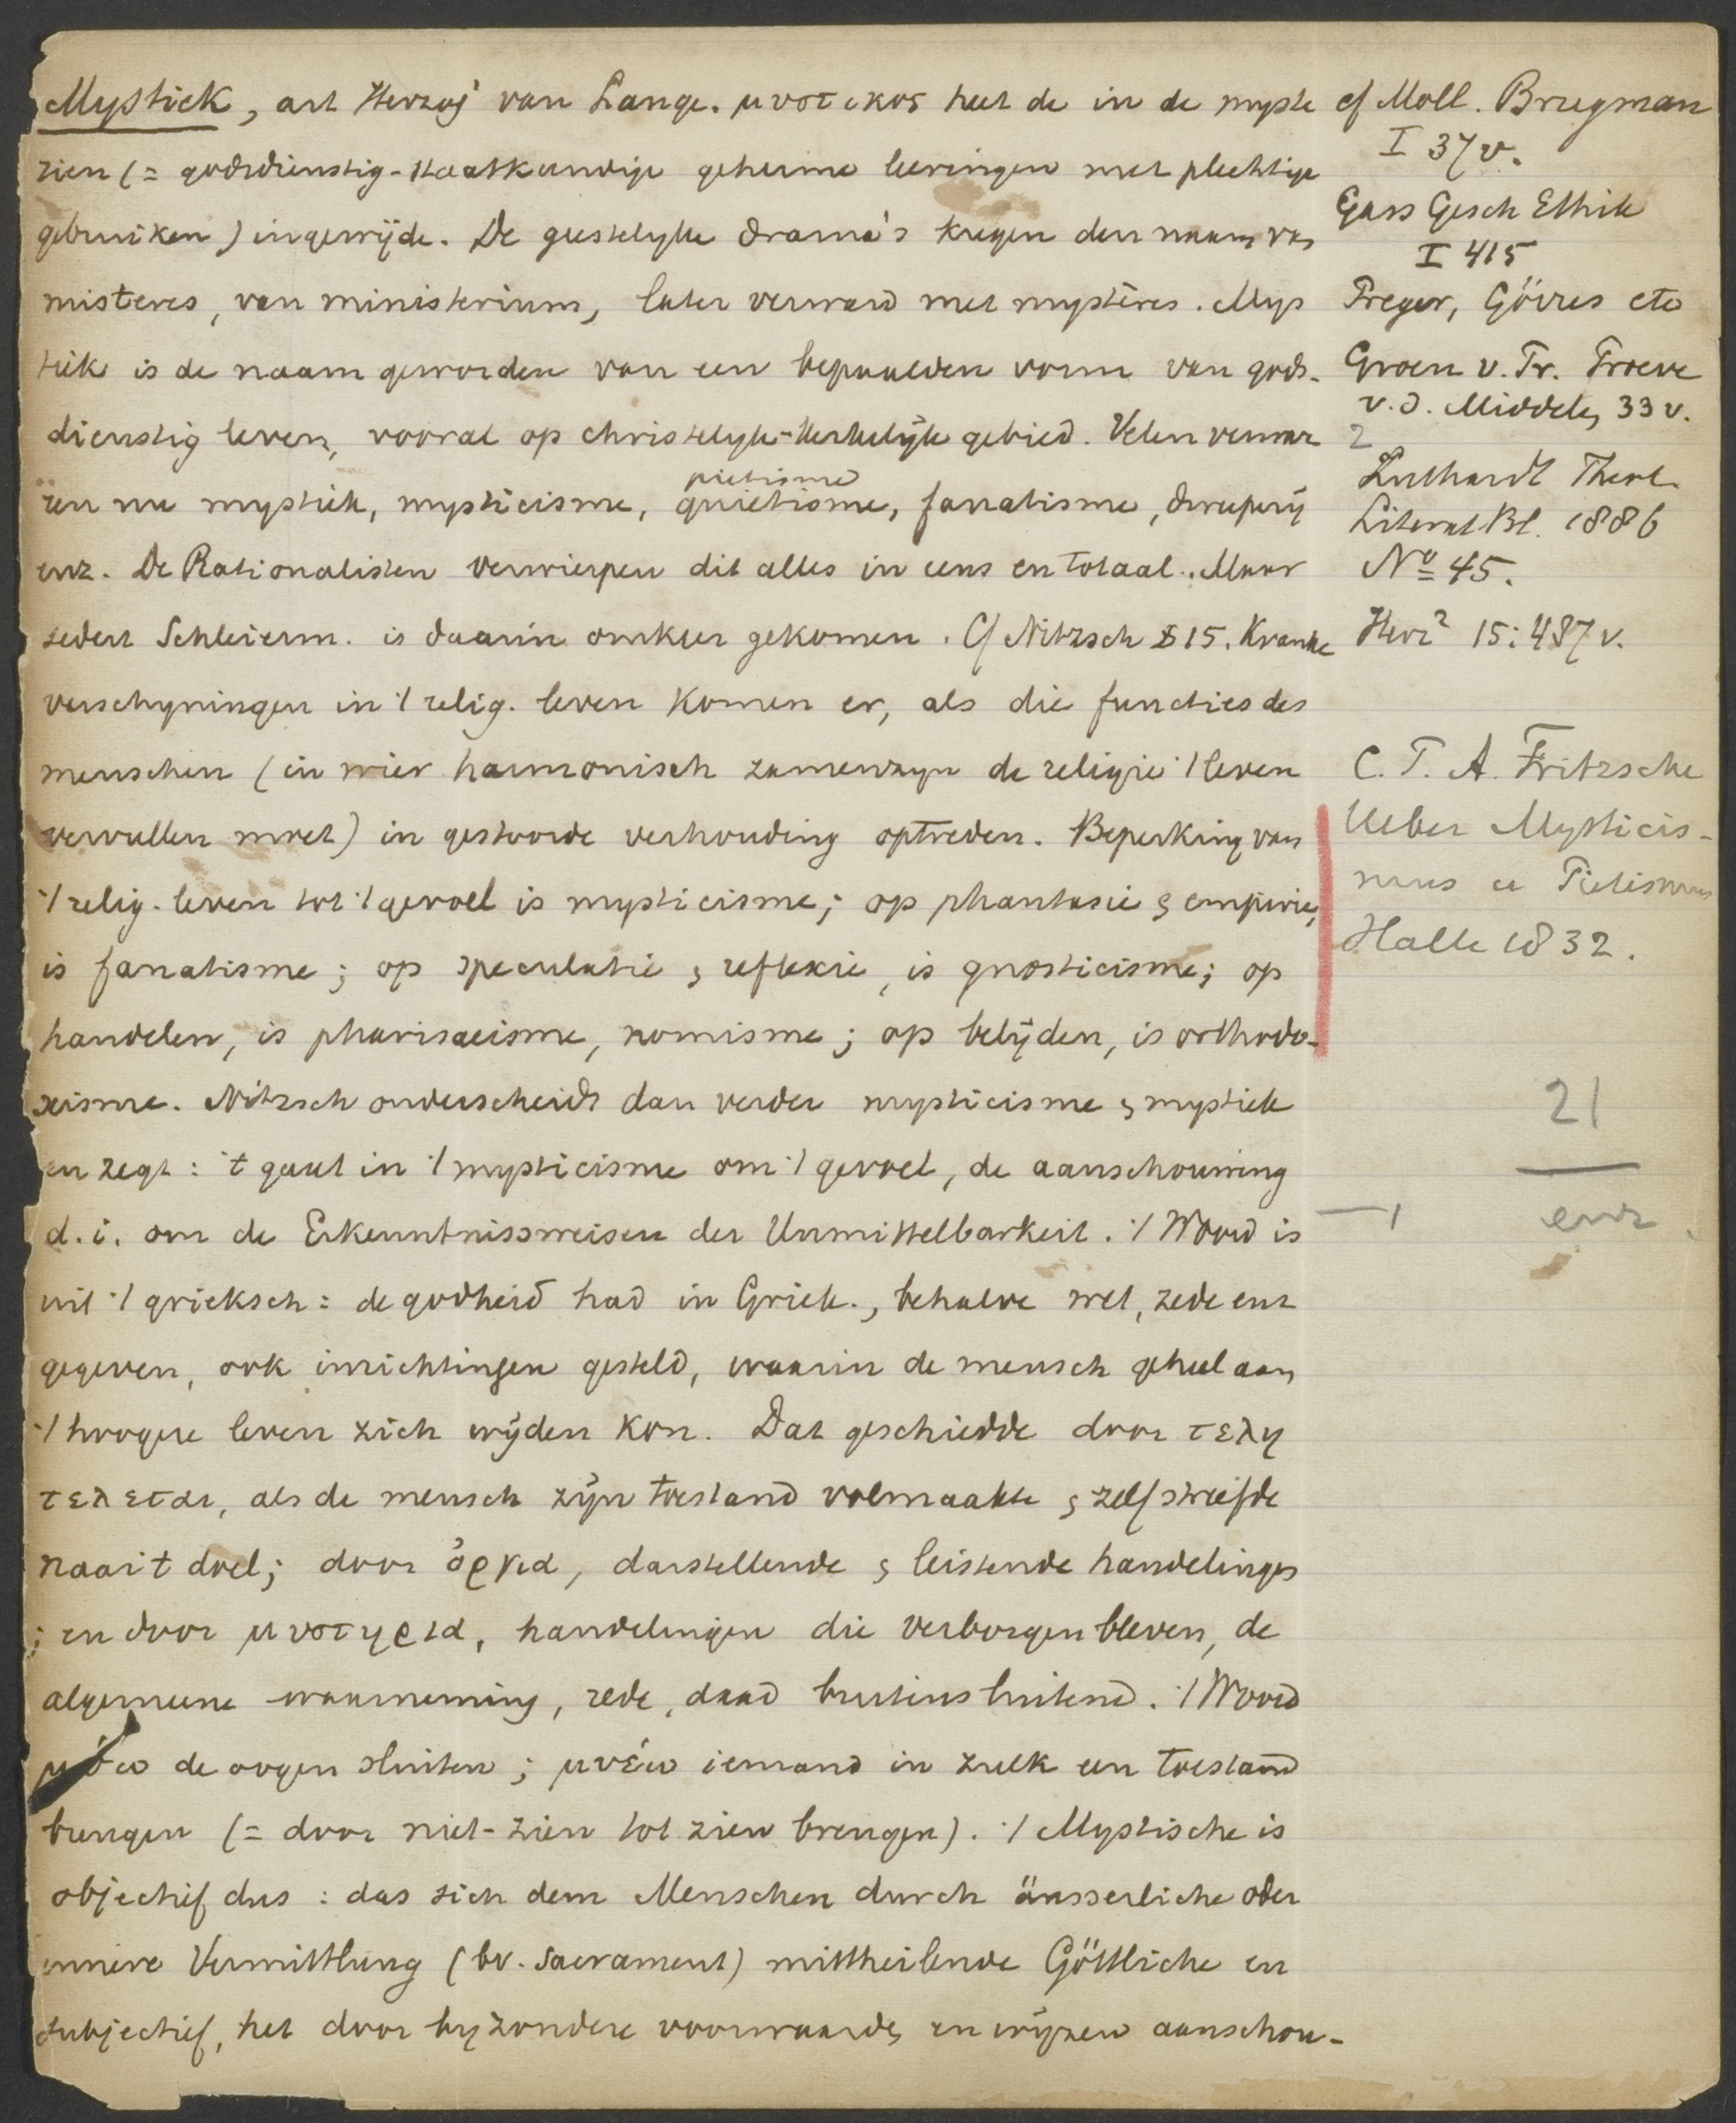 Mystiek, art Herzog van Lange. μυστικος heet de in de myste
zien (= godsdienstig-staatkundige geheime leeringen met plechtige
gebruiken) ingewijde. De geestelyke drama's kregen den naam van
misteres, van ministerium, later verward met mystères. Mys
tiek is de naam geworden van een bepaalden vorm van gods-
dienstig leven, vooral op christelyk-kerkelijk gebied. Velen verwar
ren nu mystiek, mysticisme, quietisme, fanatisme, dweperij
pietisme
enz. De Rationalisten verwierpen dit alles in eens en totaal. Maar
sedert Schleierm. is daarin omkeer gekomen. Cf Nitzsch § 15. Kranke
verschyningen in 't relig. leven komen er, als die functies des
menschen (in wier harmonisch zamenzyn de religie 't leven
vervullen moet) in gestoorde verhouding optreden. Beperking van
't relig. leven tot 't gevoel is mysticisme; op phantasie & empirie,
is fanatisme; op speculatie & reflexie, is gnosticisme; op
handelen, is pharisaeisme, nomisme; op belijden, is orthodo-
xisme. Nitzsch onderscheidt dan verder mysticisme & mystiek
en zegt: 't gaat in 't mysticisme om 't gevoel, de aanschouwing
d.i. om de Erkenntnissweisen der Unmittelbarkeit. 't Woord is
uit 't grieksch: de godheid had in Griek., behalve wet, zede enz
gegeven, ook inrichtingen gesteld, waarin de mensch geheel aan
't hoogere leven zich wijden kon. Dat geschiedde door τελη
τελεται, als de mensch zijn toestand volmaakte & zelf streefde
naar 't doel; door ὀργια, darstellende & leistende handelingen
; en door μυστηρια, handelingen die verborgen bleven, de
algemeene waarneming, rede, daad buitensluitend. 't Woord
μύω de oogen sluiten; μυέω iemand in zulk een toestand
brengen (= door niet-zien tot zien brengen). 't Mystische is
objectief dus: das sich dem Menschen durch äusserliche oder
innere Vermittlung (bv. Sacrament) mittheilende Göttliche en
subjectief, het door byzondere voorwaarden en wijzen aanschou-
cf Moll. Brugman
I 37 v.
Gass Gesch Ethik
I 415
Preger, Görres etc
Groen v. Pr. Proeve
v. d. Middel, 33 v.
2
Luthardt Theol.
Literat Bl. 1886
No 45.
Herz² 15:487 v.
C. F. A. Fritzsche
Ueber Mysticis-
mus u Pietismus
Halle 1832.
21
enz